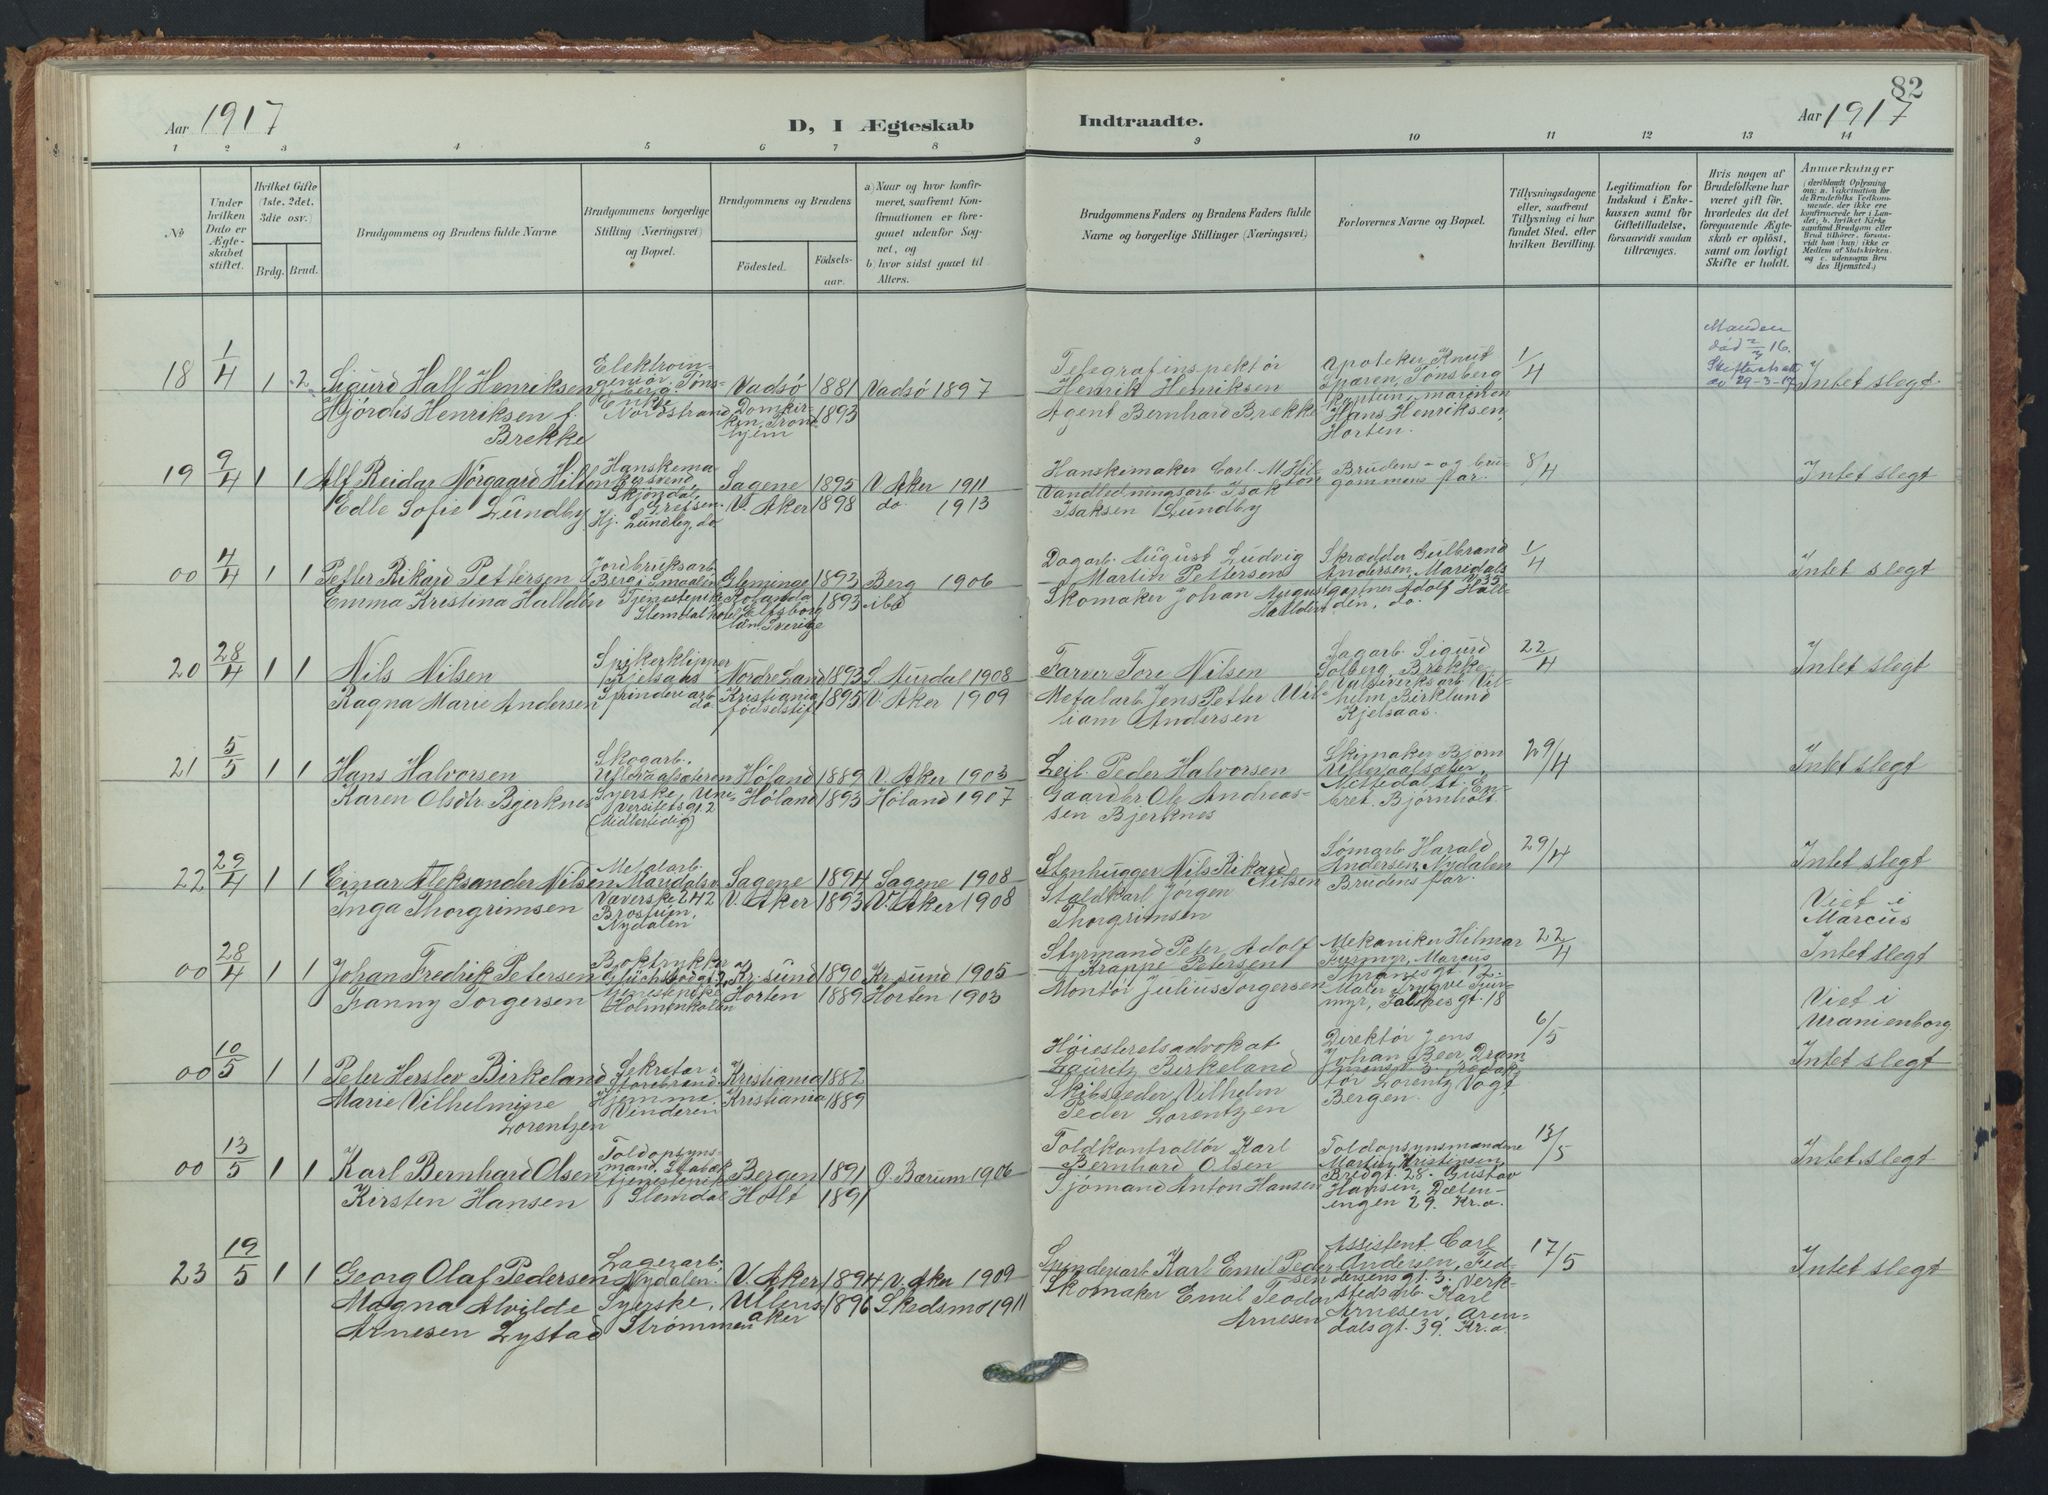 82
Aar 1917
D, I Ægteskab Indtraadte.
Aar 1917
1 2 3 4 5 6 7 8 9 10 11 12 13 14
No
Under hvilken Dato er Ægteskabet stiftet.
Hvilket Gifte (1ste, 2det, 3die osv.)
Brdg. Brud.
Brudgommens og Brudens fulde Navne
Brudgommens borgerlige Stilling (Næringsvei) og Bopæl.
Brudgommens og Brudens
Fødested. Fødselsaar.
a) Naar og hvor konfirmeret, saafremt Konfirmationen er foregaaet udenfor Sognet, og
b) hvor sidst gaaet til Alters.
Brudgommens Faders og Brudens Faders fulde Navne og borgerlige Stillinger (Næringsvei)
Forlovernes Navne og Bopæl.
Tillysningsdagene eller, saafremt Tillysning ei har fundet Sted, efter hvilken Bevilling.
Legitimation for Indskud i Enkekassen samt for Giftetilladelse, forsaavidt saadan tiltrænges.
Hvis nogen af Brudefolkene har været gift før, hvorledes da det foregaaende Ægteskab er opløst, samt om lovligt Skifte er holdt.
Anmærkninger
(deriblandt Oplysning om: a. Vakcination for de Brudefolks Vedkommende, der ikke ere konfirmerede her i Landet; b. hvilket Kirkesamfund Brudgom eller Brud tilhører, forsaavidt han (hun) ikke er Medlem af Statskirken, og c. udensogns Brudes Hjemsted.)
18 1/4 1 2 Sigurd Hall Henriksen Elektroingeniør, Tønsberg Vadsø 1881 Vadsø 1897
Hjördis Henriksen f. Brekke Enke Nordstrand Domkirken, Trondhjem 1893
Telegrafinspektör Henrik Henriksen
Agent Bernhard Brekke
Apoteker Knut Sparen, Tönsberg
Kaptein i marinen Hans Henriksen, Horten.
1/4
Manden død 2/7 16.
av 29-3-17
Intet slegt.
19 9/4 1 1 Alf Reidar Nörgaard Hilton Hanskemakersvend Skjöndal, Grefsen. Sagene 1895 V. Aker 1911
Edle Sofie Lundby Hj. Lundby, do V. Aker 1898 do. 1913
Hanskemaker Carl M Hilton
Vandledningsarb. Isak Isaksen Lundby
Brudens- og brugommens far.
8/4
Intet slegt
00 4/4 1 1 Petter Rikard Pettersen Jordbruksarb. Berg i Smaalen Gleminge 1893 Berg 1906
Emma Kristina Halldén Tjenestepike Slemdal Elfsborg län Sverige 1893 ibd
Dagarb. August Ludvig Martin Pettersen
Skomaker Johan August Halldén
Skrædder Gulbrand Andersen, Maridalsv 35
gartner Adolf Halldén, do.
1/4
Intet slegt
20 28/4 1 1 Nils Nilsen Spikerklipper Kjelsaas Nordre Land 1893 S. Aurdal 1908
Ragna Marie Andersen Spinderiarb. do. Kristiania fødselstif. 1895 V. Aker 1909
Farver Tore Nilsen
Metalarb. Jens Petter Wilham Andersen
Sagarb. Sigurd Solberg, Brekke
Valseverksarb. Vilhelm Birklund Kjelsaas.
22/4
Intet slegt
21 5/5 1 1 Hans Halvorsen Skogarb., Ullevaalsæteren Höland 1889 V. Aker 1903
Karen Olsdtr. Bjerknes Syerske, Universitetsgt. 2 (Midlertidig) Höland 1893 Höland 1907
Leil. Peder Halvorsen
Gaardbr. Ole Andreassen Bjerknes
Skimaker Bjørn Ullevaalsæter
Nettedalst. Enbret, Bjørnholt.
29/4
Intet slegt
22 29/4 1 1 Einar Aleksander Nilsen Metalarb. Maridalsv. 242 Sagene 1894 Sagene 1908
Inga Thorgrimsen Væverske Nydalen V. Aker 1893 V. Aker 1908
Stenhugger Nils Rikard Nilsen
Staldkarl Jörgen Thorgrimsen
Sömarb. Harald Andersen, Nydalen
Brudens far.
29/4
Intet slegt
Viet i Marcus
00 28/4 1 1 Johan Fredrik Petersen Boktrykker Kr.sund 1890 Kr.sund 1905
Franny Torgersen Tjenestepike Holmenkolen Horten 1889 Horten 1903
Styrmand Peter Adolf Krappe Petersen
Montør Julius Torgersen
Mekaniker Hilmar Furmyr, Marcus Thranesgt. 12.
Maler Trygve Furmyr, Falkesgt. 18
22/4
Intet slegt
Viet i Uranienborg
00 10/5 1 1 Peter Herslev Birkeland Sekretær i Storebrand Kristiania 1882
Marie Vilhelmine Lorentzen Hjemme. Vinderen Kristiania 1889
Høiesteretsadvokat Lauritz Birkeland
Skibsreder Vilhelm Peder Lorentzen
Direktør Jens Johan Beer, Drammensv. 3.
Redaktör Lorentz Vogt, Bergen.
6/5
Intet slegt
00 13/5 1 1 Karl Bernhard Olsen Toldopsynsmand, Stabæk Bergen 1891 O. Bærum 1906
Kirsten Hansen tjenestepike Slemdal Holt 1891
Toldkontrollör Karl Bernhard Olsen
Sjömand Anton Hansen
Toldopsynsmændene Martin Kristinsen Bredgt. 28. Gustav Hansen, Dælenengen 29. Kr.a.
13/5
Intet slegt
23 19/5 1 1 Georg Olaf Pedersen Lagerarb., Nydalen. V. Aker 1894 V. Aker 1909
Magna Alvilde Arnesen Lystad Syerske, Strömmen Ullensaker 1896 Skedsmo 1911
Spinderiarb. Karl Emil Pedersen
Skomaker Emil Teodor Arnesen
Assistent Carl Andersen, Feddersensgt. 3. Verkstedsarb. Karl Arnesen, Arendalsgt. 39. Kr.a.
17/5
Intet slegt